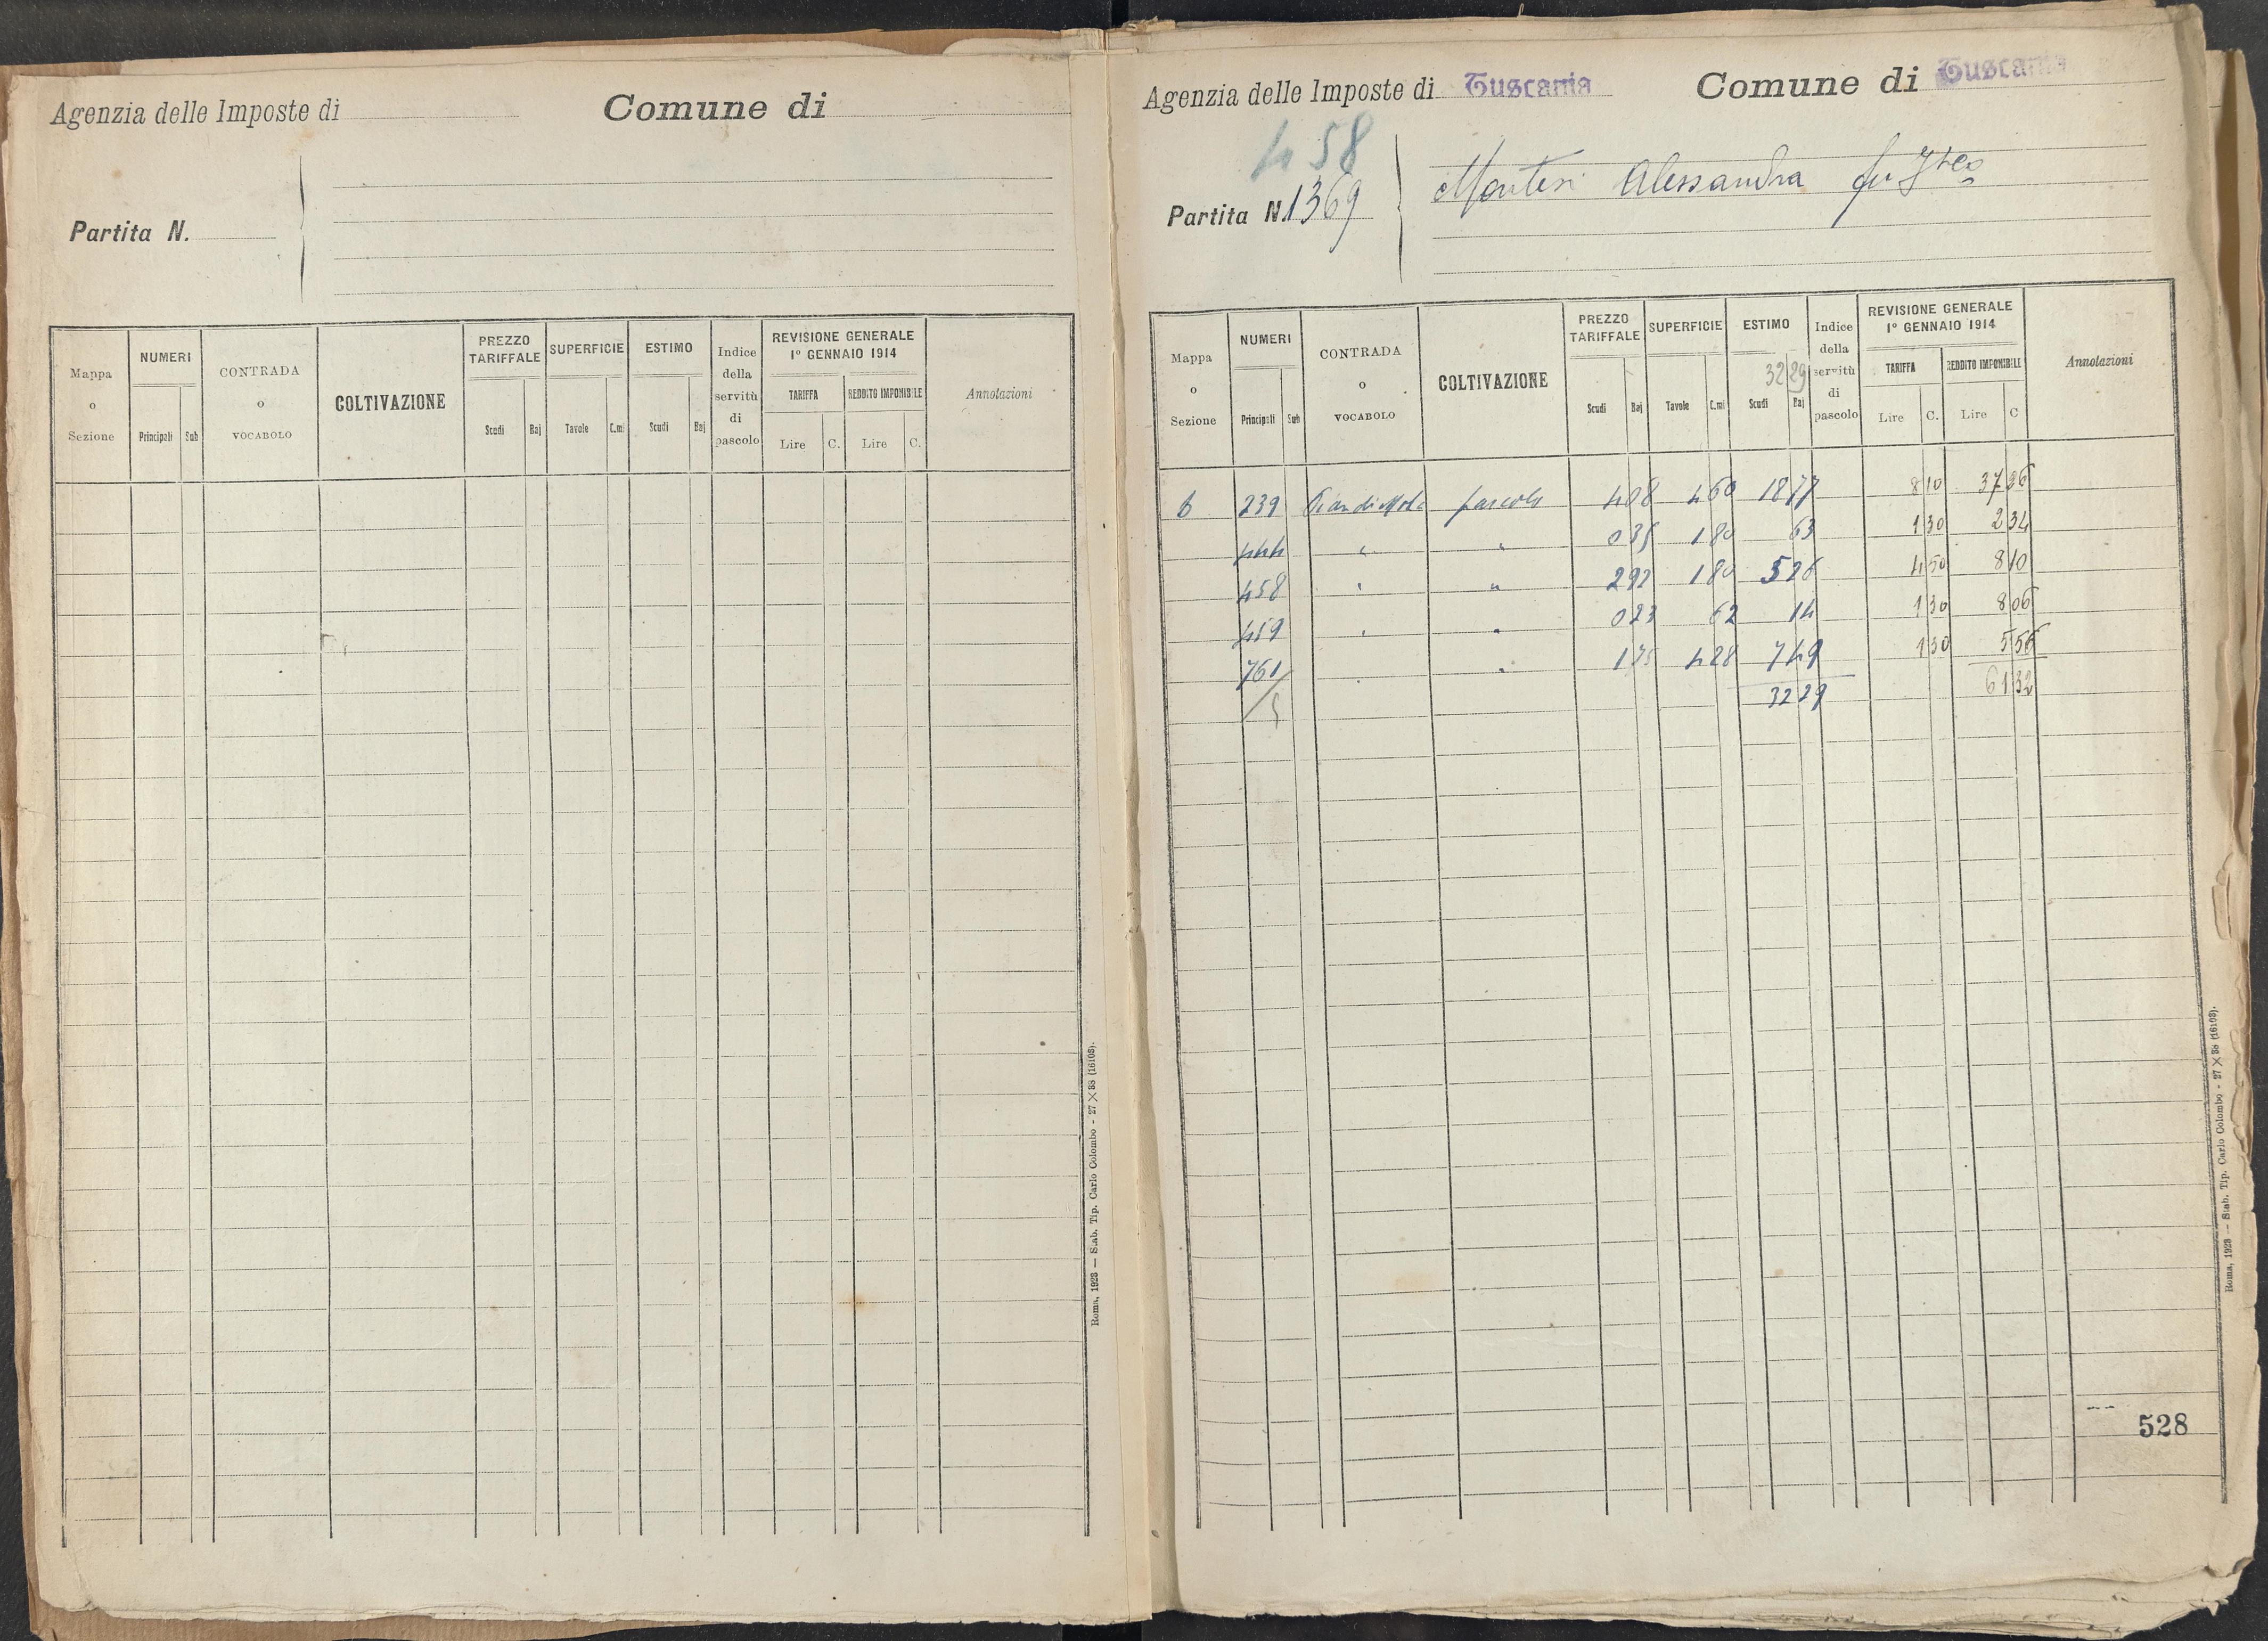 Agenzia delle Imposte di
Comune di
Partita N.
Mappa o Sezione
NUMERI
Principali Sub
CONTRADA o VOCABOLO
COLTIVAZIONE
PREZZO TARIFFALE
Scudi Baj
SUPERFICIE
Tavole C.mi
ESTIMO
Scudi Baj
Indice della servitù di pascolo
REVISIONE GENERALE
1° GENNAIO 1914
TARIFFA REDDITO IMPONIBILE
Lire C. Lire C.
Annotazioni
Roma, 1923 — Stab. Tip. Carlo Colombo - 27 × 38 (16103).
Agenzia delle Imposte di Tuscania Comune di Tuscania
458
Partita N. 1369 Montesi Alessandra fu
Mappa o Sezione
NUMERI
Principali Sub
CONTRADA o VOCABOLO
COLTIVAZIONE
PREZZO TARIFFALE
Scudi Baj
SUPERFICIE
Tavole C.mi
ESTIMO
32 29
Scudi Baj
Indice della servitù di pascolo
REVISIONE GENERALE
1° GENNAIO 1914
TARIFFA REDDITO IMPONIBILE
Lire C. Lire C
Annotazioni
6 239 Pian di Mola pascolo 4 08 4 60 18 77 8 10 37 26
444 " " 0 35 1 80 63 1 30 2 34
458 " " 2 92 1 80 5 26 4 50 8 10
459 " " 0 23 62 14 1 30 8 06
761 " " 1 75 4 28 7 49 1 30 5 56
5 32 29 61 32
528
Roma, 1923 — Stab. Tip. Carlo Colombo - 27 × 38 (16103).